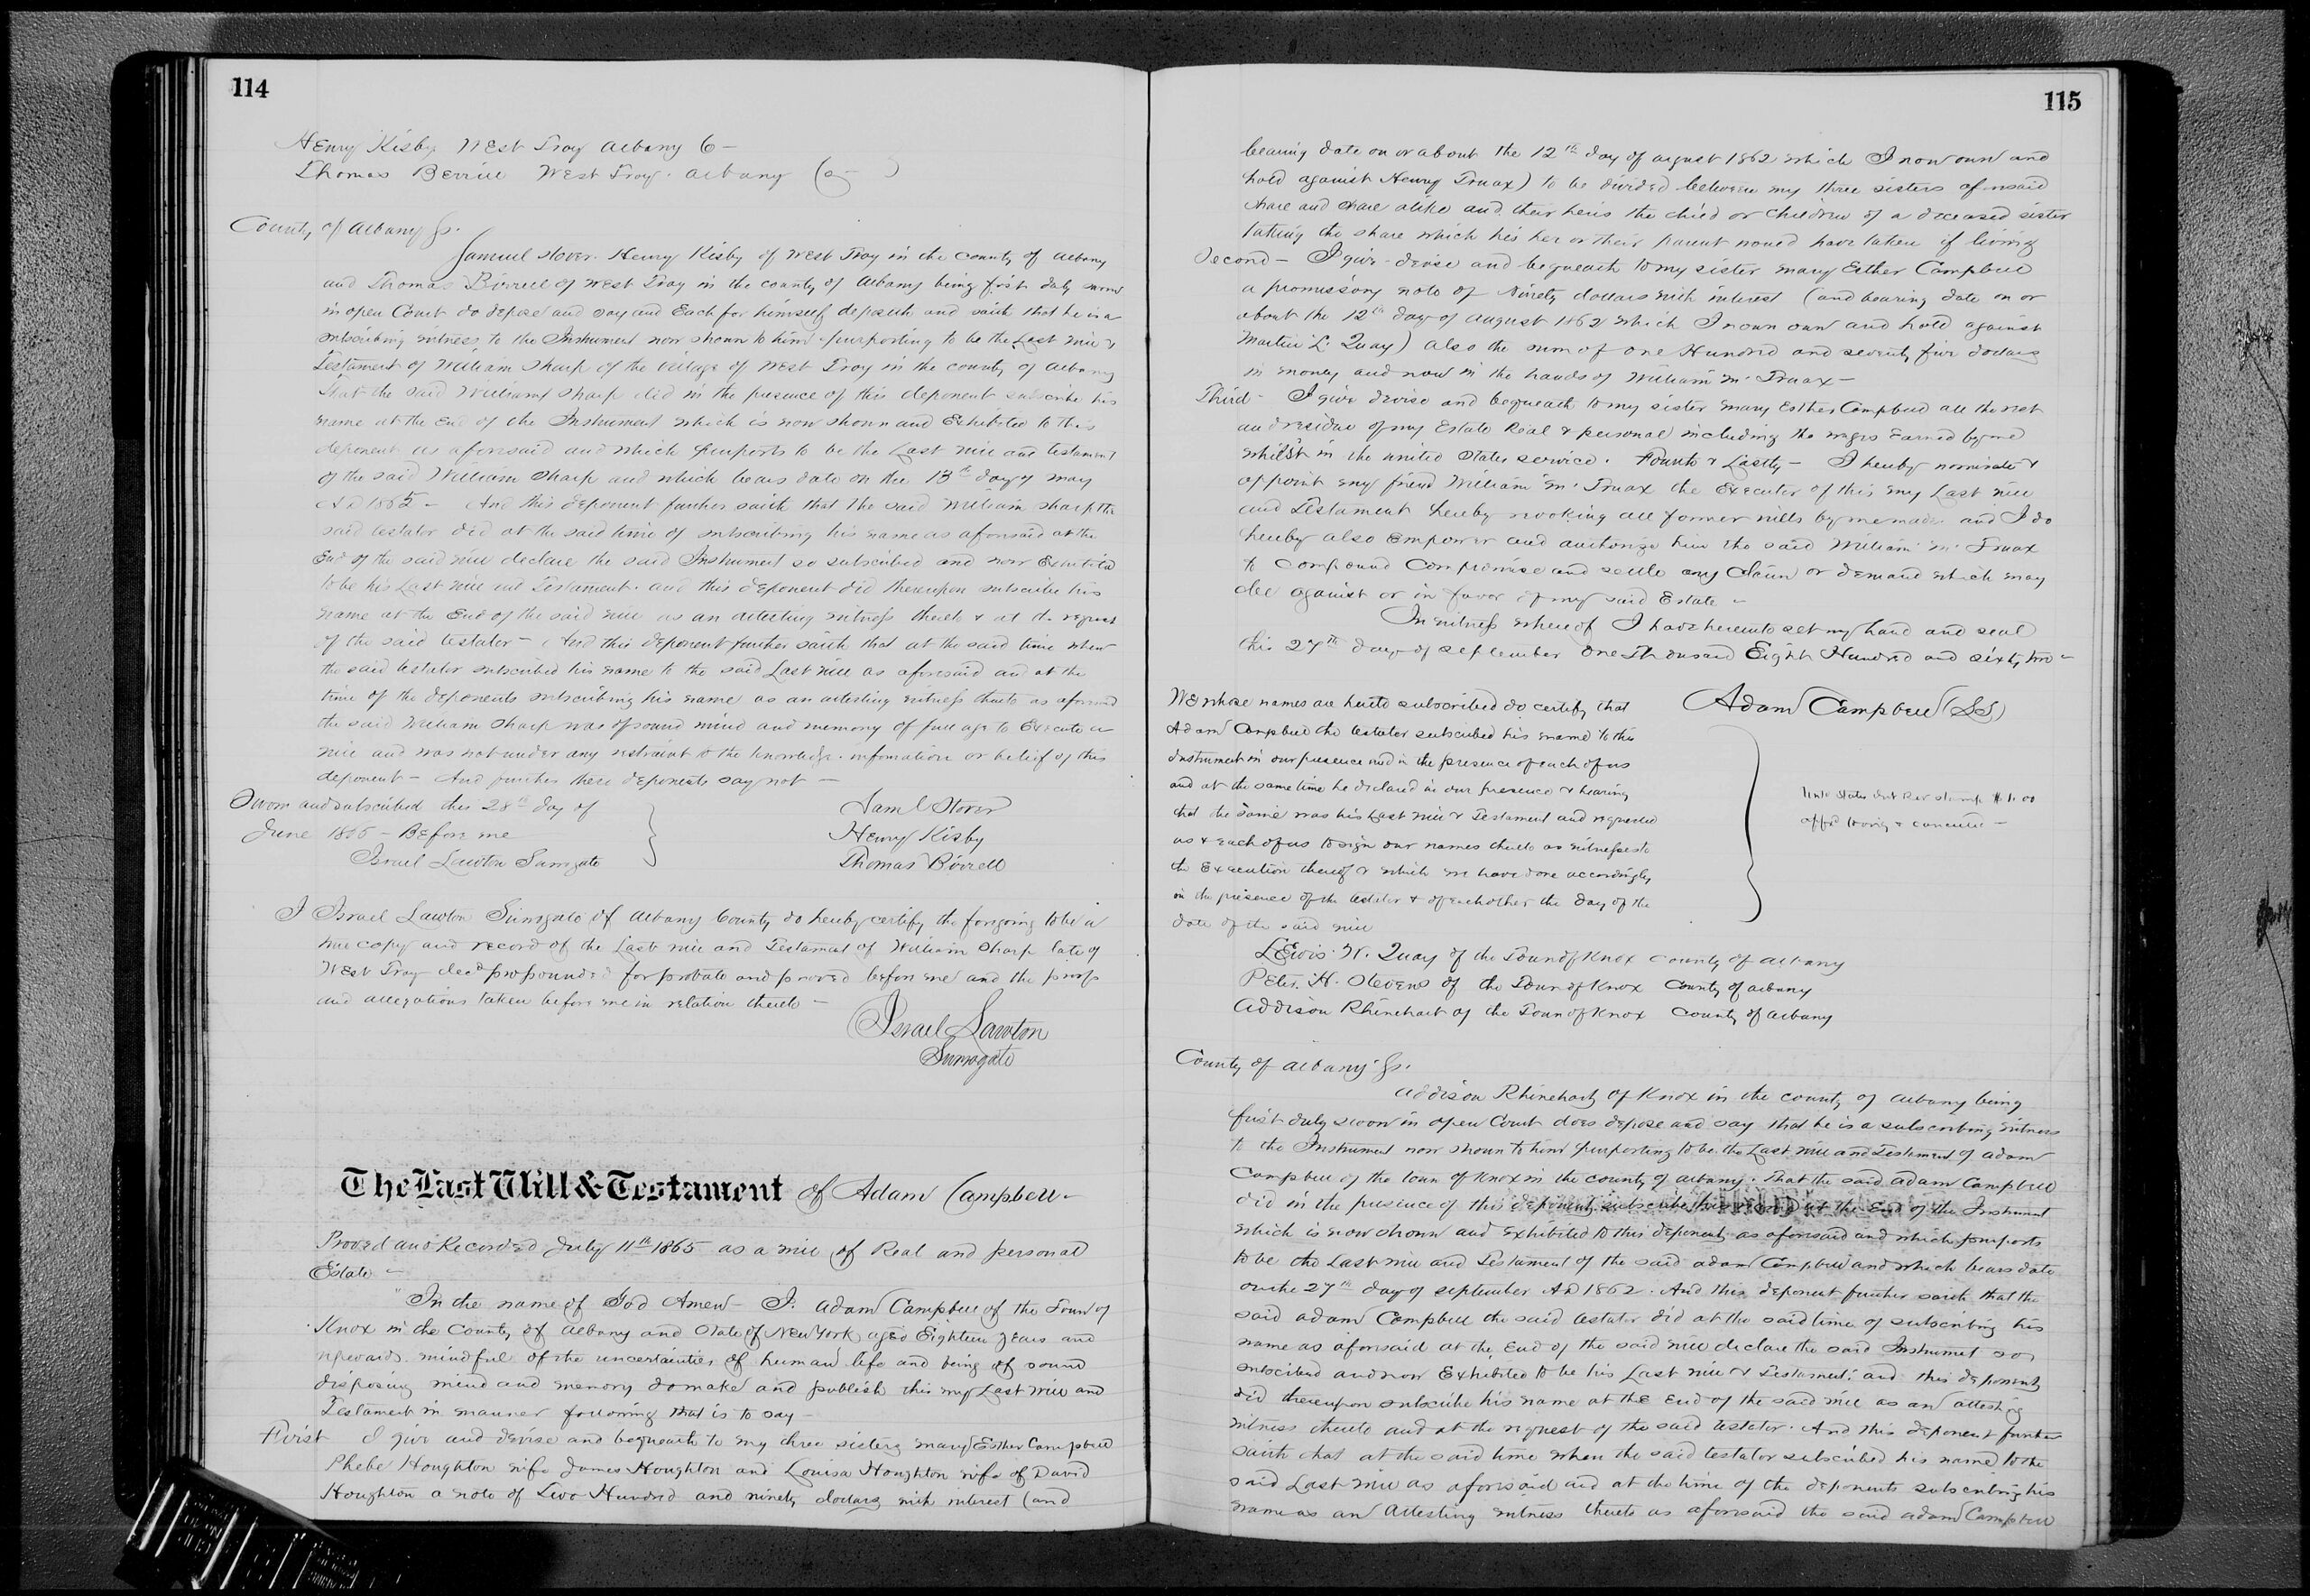 114
Henry Kisby West Troy Albany Co –
Thomas Berrill West Troy. Albany Co –
County of Albany Ss.
Samuel Stover. Henry Kisby of West Troy in the County of Albany
and Thomas Birrell of West Troy in the County of Albany being first duly sworn
in open Court do depose and say and Each for himself deposeth and saith that he is a
subscribing witness to the Instrument now shown to him purporting to be the Last Will &
Testament of William Sharp of the Village of West Troy in the County of Albany
That the said William Sharp did in the presence of this deponent subscribe his
name at the End of the Instrument which is now shown and Exhibited to this
deponent as aforesaid and which purports to be the Last Will and testament
of the said William Sharp and which bears date on the 13th day of May
AD 1865 – And this deponent further saith that the said William Sharp the
said testator did at the said time of subscribing his name as aforesaid at the
End of the said Will declare the said Instrument so subscribed and now Exhibited
to be his Last Will and Testament. and this deponent did thereupon subscribe his
name at the End of the said Will as an attesting witness thereto & at the request
of the said testator – And this deponent further saith that at the said time when
the said testator subscribed his name to the said Last Will as aforesaid and at the
time of the deponents subscribing his name as an attesting witness thereto as aforesaid
the said William Sharp was of sound mind and memory of full age to Execute a
Will and was not under any restraint to the knowledge. information or belief of this
deponent – And further these deponents say not –
Sworn and subscribed this 28th day of
June 1865 – Before me
Israel Lawton Surrogate
Saml Stover
Henry Kisby
Thomas Birrell
I Israel Lawton Surrogate of Albany County do hereby certify the foregoing to be a
true copy and record of the Last Will and Testament of William Sharp late of
West Troy decd propounded for probate and proved before me and the proofs
and allegations taken before me in relation thereto –
Israel Lawton
Surrogate
The Last Will & Testament of Adam Campbell –
Proved and Recorded July 11th 1865 as a Will of Real and personal
Estate –
In the name of God Amen – I. Adam Campbell of the Town of
Knox in the County of Albany and State of New York aged Eighteen years and
upwards. mindful of the uncertainties of human life and being of sound
disposing mind and memory do make and publish this my Last Will and
Testament in manner following that is to say –
First I give and devise and bequeath to my three sisters Mary Esther Campbell
Phebe Houghton wife James Houghton and Louisa Houghton wife of David
Houghton a note of Two Hundred and ninety dollars with interest (and
115
bearing date on or about the 12th day of August 1862 which I now own and
hold against Henry Truax) to be divided between my three sisters aforesaid
share and share alike and their heirs the child or children of a deceased sister
taking the share which his her or their parent would have taken if living
Second – I give devise and bequeath to my sister Mary Esther Campbell
a promissory note of Ninety dollars with interest (and bearing date on or
about the 12th day of August 1862 which I now own and hold against
Martin L. Quay) also the sum of One Hundred and seventy five dollars
in money and now in the hands of William M. Truax –
Third – I give devise and bequeath to my sister Mary Esther Campbell all the rest
and residue of my Estate Real & personal including the wages Earned by me
whilst in the United States service. Fourth & Lastly – I hereby nominate &
appoint my friend William M. Truax the Executor of this my Last Will
and Testament hereby revoking all former wills by me made and I do
hereby also Empower and authorize him the said William M. Truax
to Compound Compromise and settle any Claim or demand which may
be against or in favor of my said Estate –
In witness whereof I have hereunto set my hand and seal
this 27th day of September One Thousand Eight Hundred and sixty two –
Adam Campbell (LS)
We whose names are hereto subscribed do certify that
Adam Campbell the testator subscribed his name to this
Instrument in our presence and in the presence of each of us
and at the same time he declared in our presence & hearing
that the same was his Last Will & Testament and requested
us & each of us to sign our names thereto as witnesses to
the Execution thereof & which we have done accordingly
in the presence of the testator & of each other the day of the
date of the said Will
United States Int Rev stamp $1.00
affxd & cancelled –
Lewis. W. Quay of the Town of Knox County of Albany
Peter. H. Stevens of the Town of Knox County of Albany
Addison Rhinehart of the Town of Knox County of Albany
County of Albany Ss.
Addison Rhinehart of Knox in the County of Albany being
first duly sworn in open Court does depose and say that he is a subscribing witness
to the Instrument now shown to him purporting to be the Last Will and Testament of Adam
Campbell of the Town of Knox in the County of Albany. That the said Adam Campbell
did in the presence of this deponent subscribe his name at the End of the Instrument
which is now shown and exhibited to this deponent as aforesaid and which purports
to be the Last Will and Testament of the said Adam Campbell and which bears date
on the 27th day of September AD 1862. And this deponent further saith that the
said Adam Campbell the said testator did at the said time of subscribing his
name as aforesaid at the End of the said Will declare the said Instrument so
subscribed and now Exhibited to be his Last Will & Testament: and this deponent
did thereupon subscribe his name at the End of the said Will as an attesting
witness thereto and at the request of the said testator. And this deponent further
saith that at the said time when the said testator subscribed his name to the
said Last Will as aforesaid and at the time of the deponents subscribing his
name as an Attesting witness thereto as aforesaid the said Adam Campbell